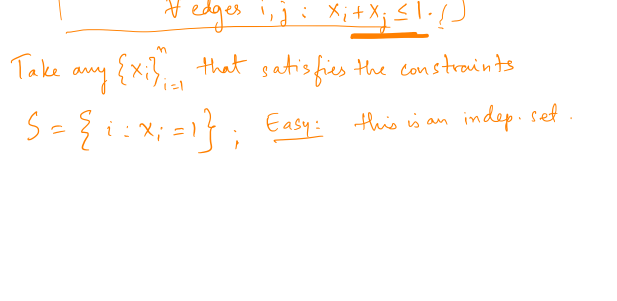 ∀ edges i, j : x_i + x_j ≤ 1.
Take any {x_i}_{i=1}^n that satisfies the constraints
S = { i : x_i = 1 } ; Easy: this is an indep. set.